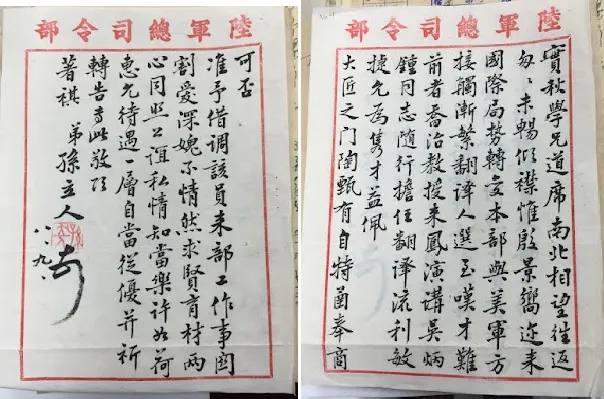 陸軍總司令部
實秋學兄道席南北相望往返
匆匆未暢傾襟惟殷景嚮邇來
國際局勢轉變本部與美軍方
接觸漸繁翻譯人選至嘆才難
前者喬治教授來鳳演講吳炳
鍾同志隨行擔任翻譯流利敏
捷允為雋才益佩
大匠之門陶甄有自特函奉商
陸軍總司令部
可否
准予借調該員來部工作事固
割愛深媿不情然求賢育材兩
心同照公誼私情知當樂許如荷
惠允待遇一層自當從優并祈
轉告專此敬頌
著祺 弟孫立人
八、九、